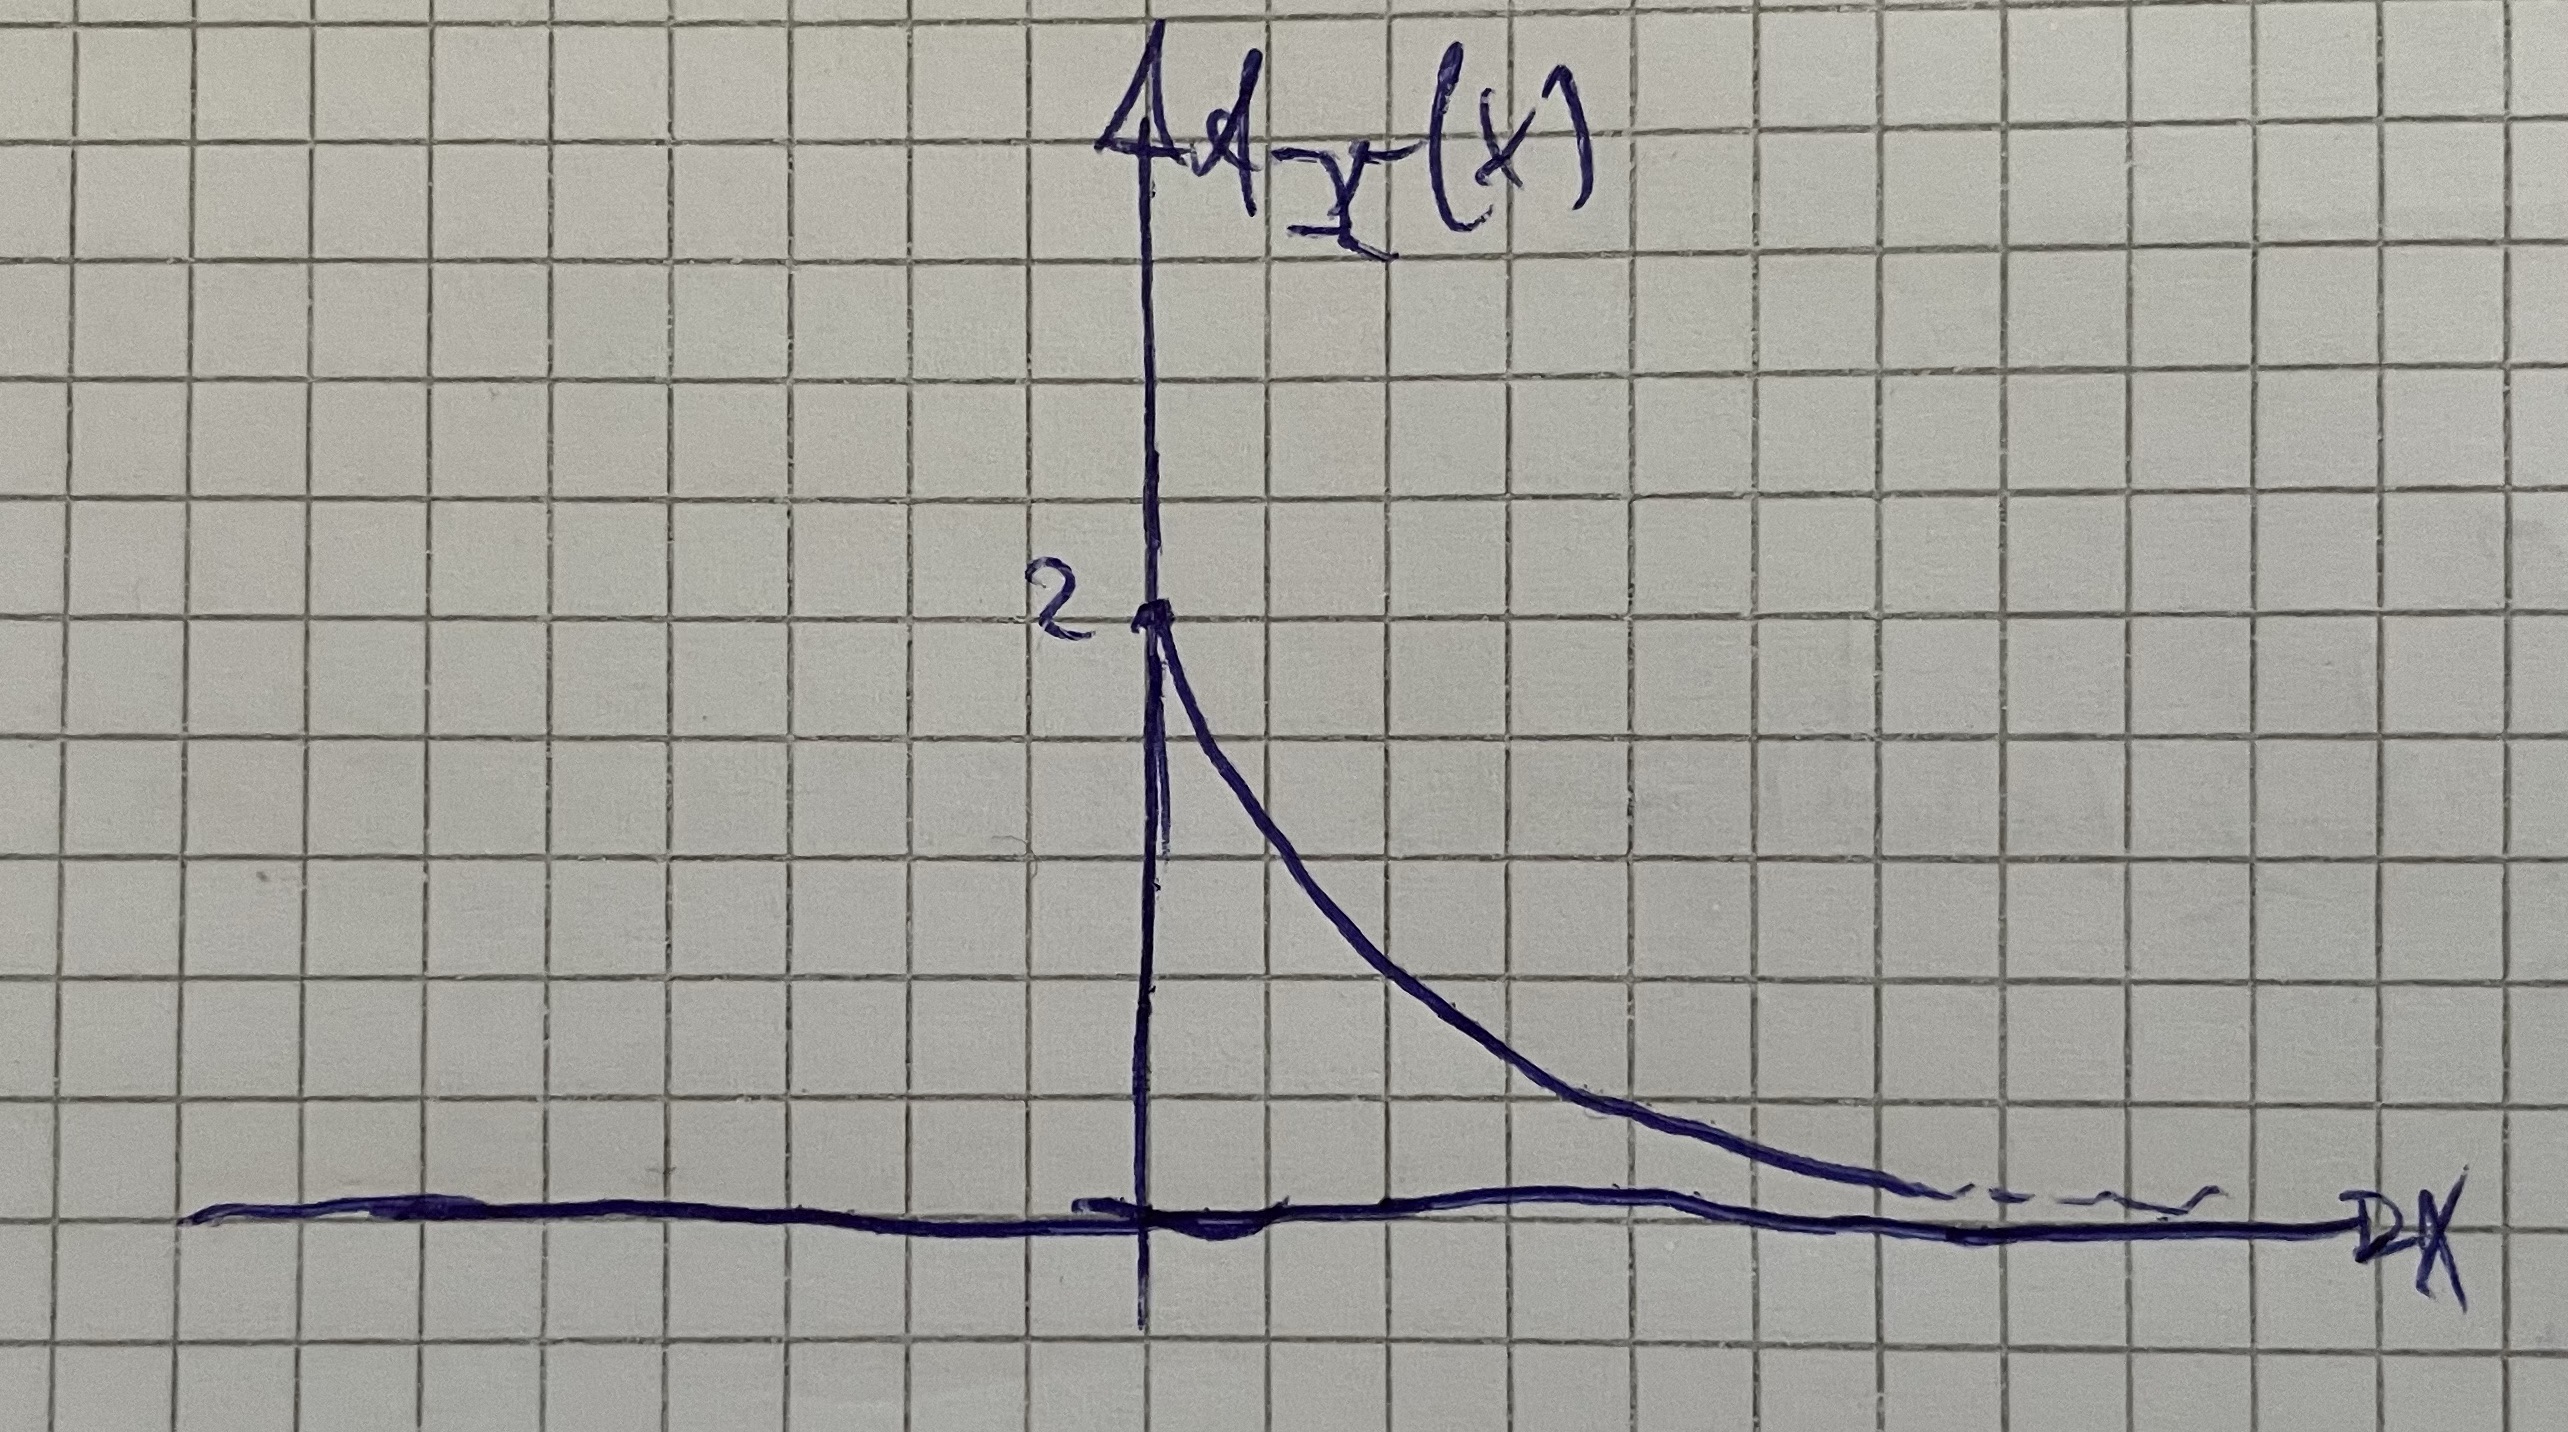 d_X(x)
2
x